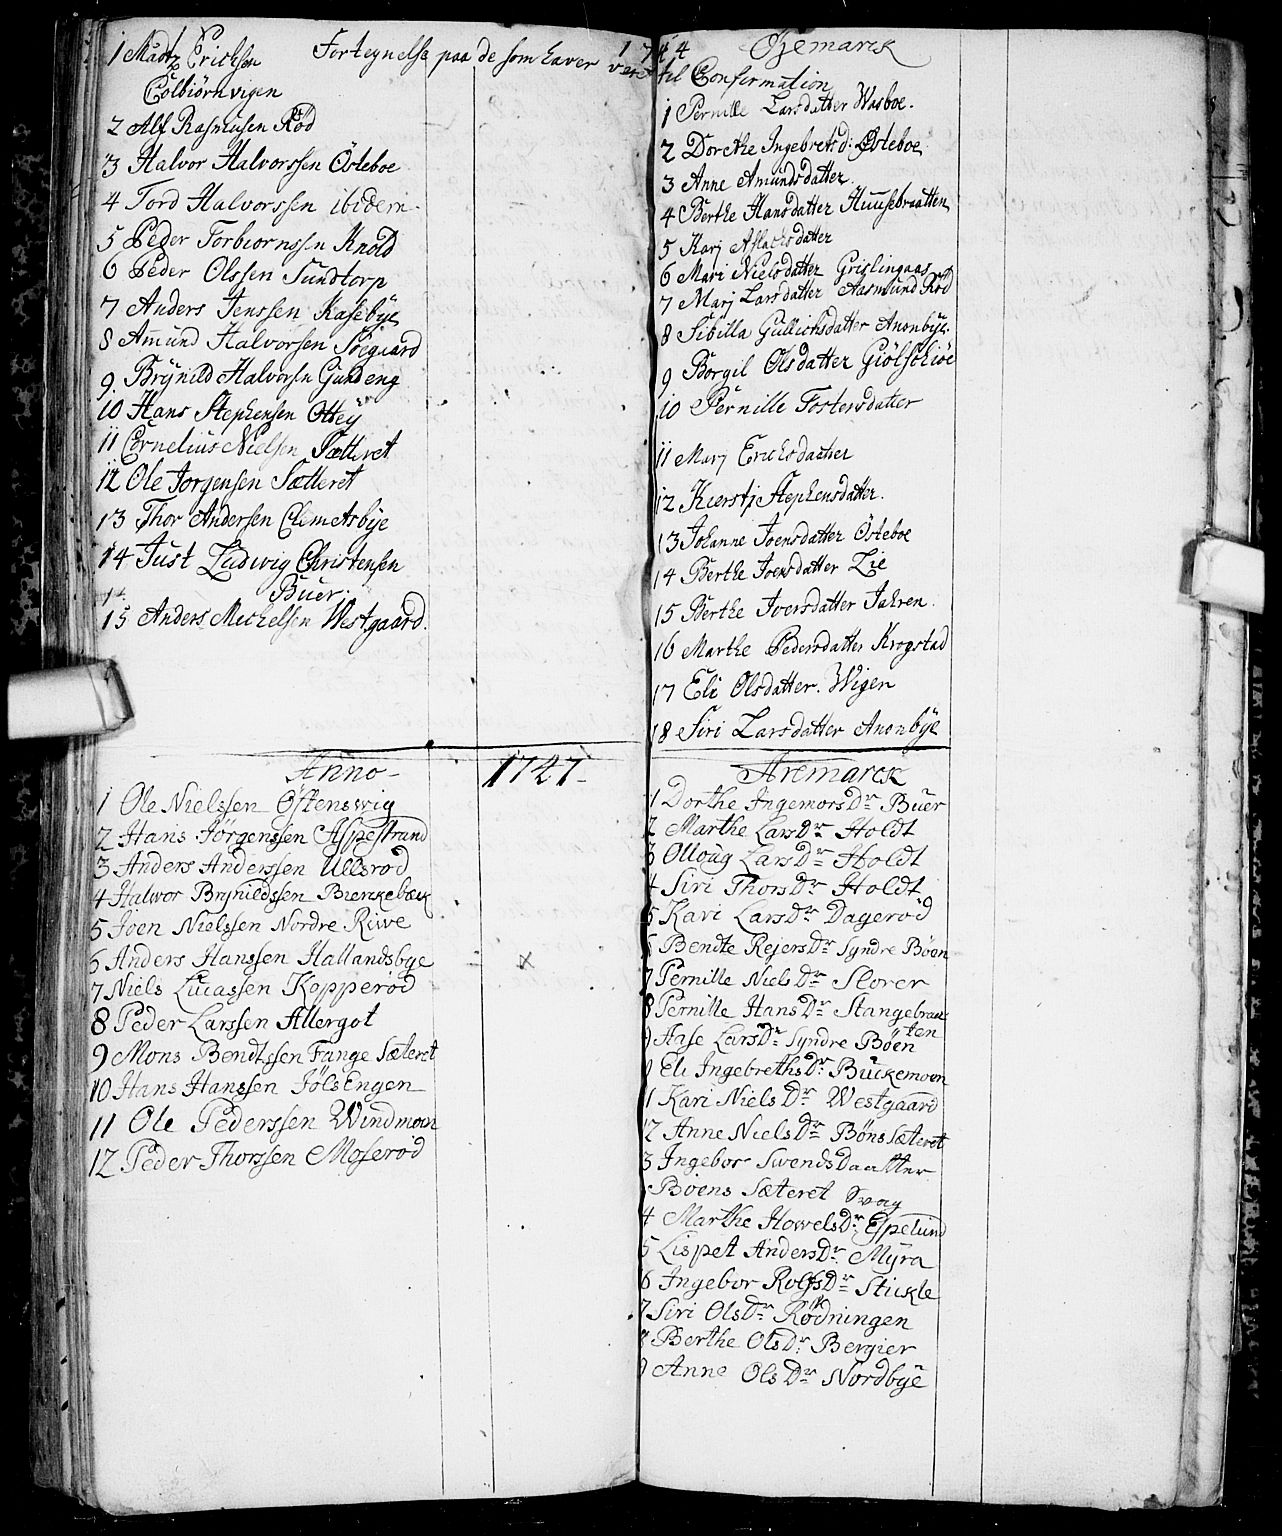 Fortegnelse paa de som haver været til Confirmation
1744 Øxemarck
1 Madtz Erichsen
Colbiörnvigen
2 Alf Rasmusen Röd
3 Halvor Halvorssen Østeboe
4 Tord Halvorssen ibidem
5 Peder Torbiornssen Knold
6 Peder Olssen Sundtorp
7 Anders Jenssen Kasebye
8 Amund Halvorsen Söegaard
9 Brÿnild Halvorsen Gundeng
10 Hans Stephensen Ottey
11 Cornelius Nielsen Sætteret
12 Ole Jorgensen Sætteret
13 Thor Andersen Clemetsbÿe
14 Just Ludwig Christensen
Buer
15 Anders Michelsen Westgaard
1 Pernille Larsdatter Wasboe
2 Dorethe Ingebretsd: Østeboe
3 Anne Amundsdatter
4 Berthe Hansdatter Huusebraatten
5 Karj Aslachsdatter
6 Mari Nielsdatter Grislingaas
7 Marj Larsdatter Aasmund Röd
8 Sibilla Gullichsdatter Anonbÿe
9 Borgil Olsdatter Giölsöhiöe
10 Pernille Tostensdatter
11 Marj Erichsdatter
12 Kierstj Stephensdatter
13 Johanne Joensdatter Østeboe
14 Berthe Joensdatter Lie
15 Berthe Joersdatter Jahren
16 Marthe Pedersdatter Krogstad
17 Eli Olsdatter Wigen
18 Siri Larsdatter Anonbÿe
Anno 1747
1 Ole Nielssen Östenswig
2 Hans Jörgenssen Aspestrand
3 Anders Anderssen Ullsröd
4 Halvor Brynildssen Bierckebæck
5 Joen Nielssen Nordre Riiwe
6 Anders Hanssen Hallandsbye
7 Niels Lucassen Kopperöd
8 Peder Larssen Allergot
9 Mons Bendtssen Fange Sæteret
10 Hans Hanssen Jöls Engen
11 Ole Pederssen Windmoen
12 Peder Thorssen Moseröd
Aremarck
1 Dorthe Ingemors Dr Buer
2 Marthe Lars Dr Holdt
3 Olloug Lars Dr Holdt
4 Siri Thors Dr Holdt
5 Kari Lars Dr Dageröd
6 Bendte Rejers Dr Syndre Böen
7 Pernille Niels Dr Slorer
8 Pernille Hans Dr Stangebraat
ten
9 Aase Lars Dr Syndre Böen
0 Eli Ingebreths Dr Buckemoen
1 Kari Niels Dr Westgaard
12 Anne Niels Dr Böns Sæteret
3 Ingebor Swends Daatter
Böens Sæteret Svag
4 Marthe Howels Dr Espelund
5 Lispet Anders Dr Mÿra
6 Ingebor Rolfs Dr Stickle
7 Siri Ols Dr Rödningen
8 Berthe Ols Dr Bergier
9 Anne Ols Dr Nordbÿe